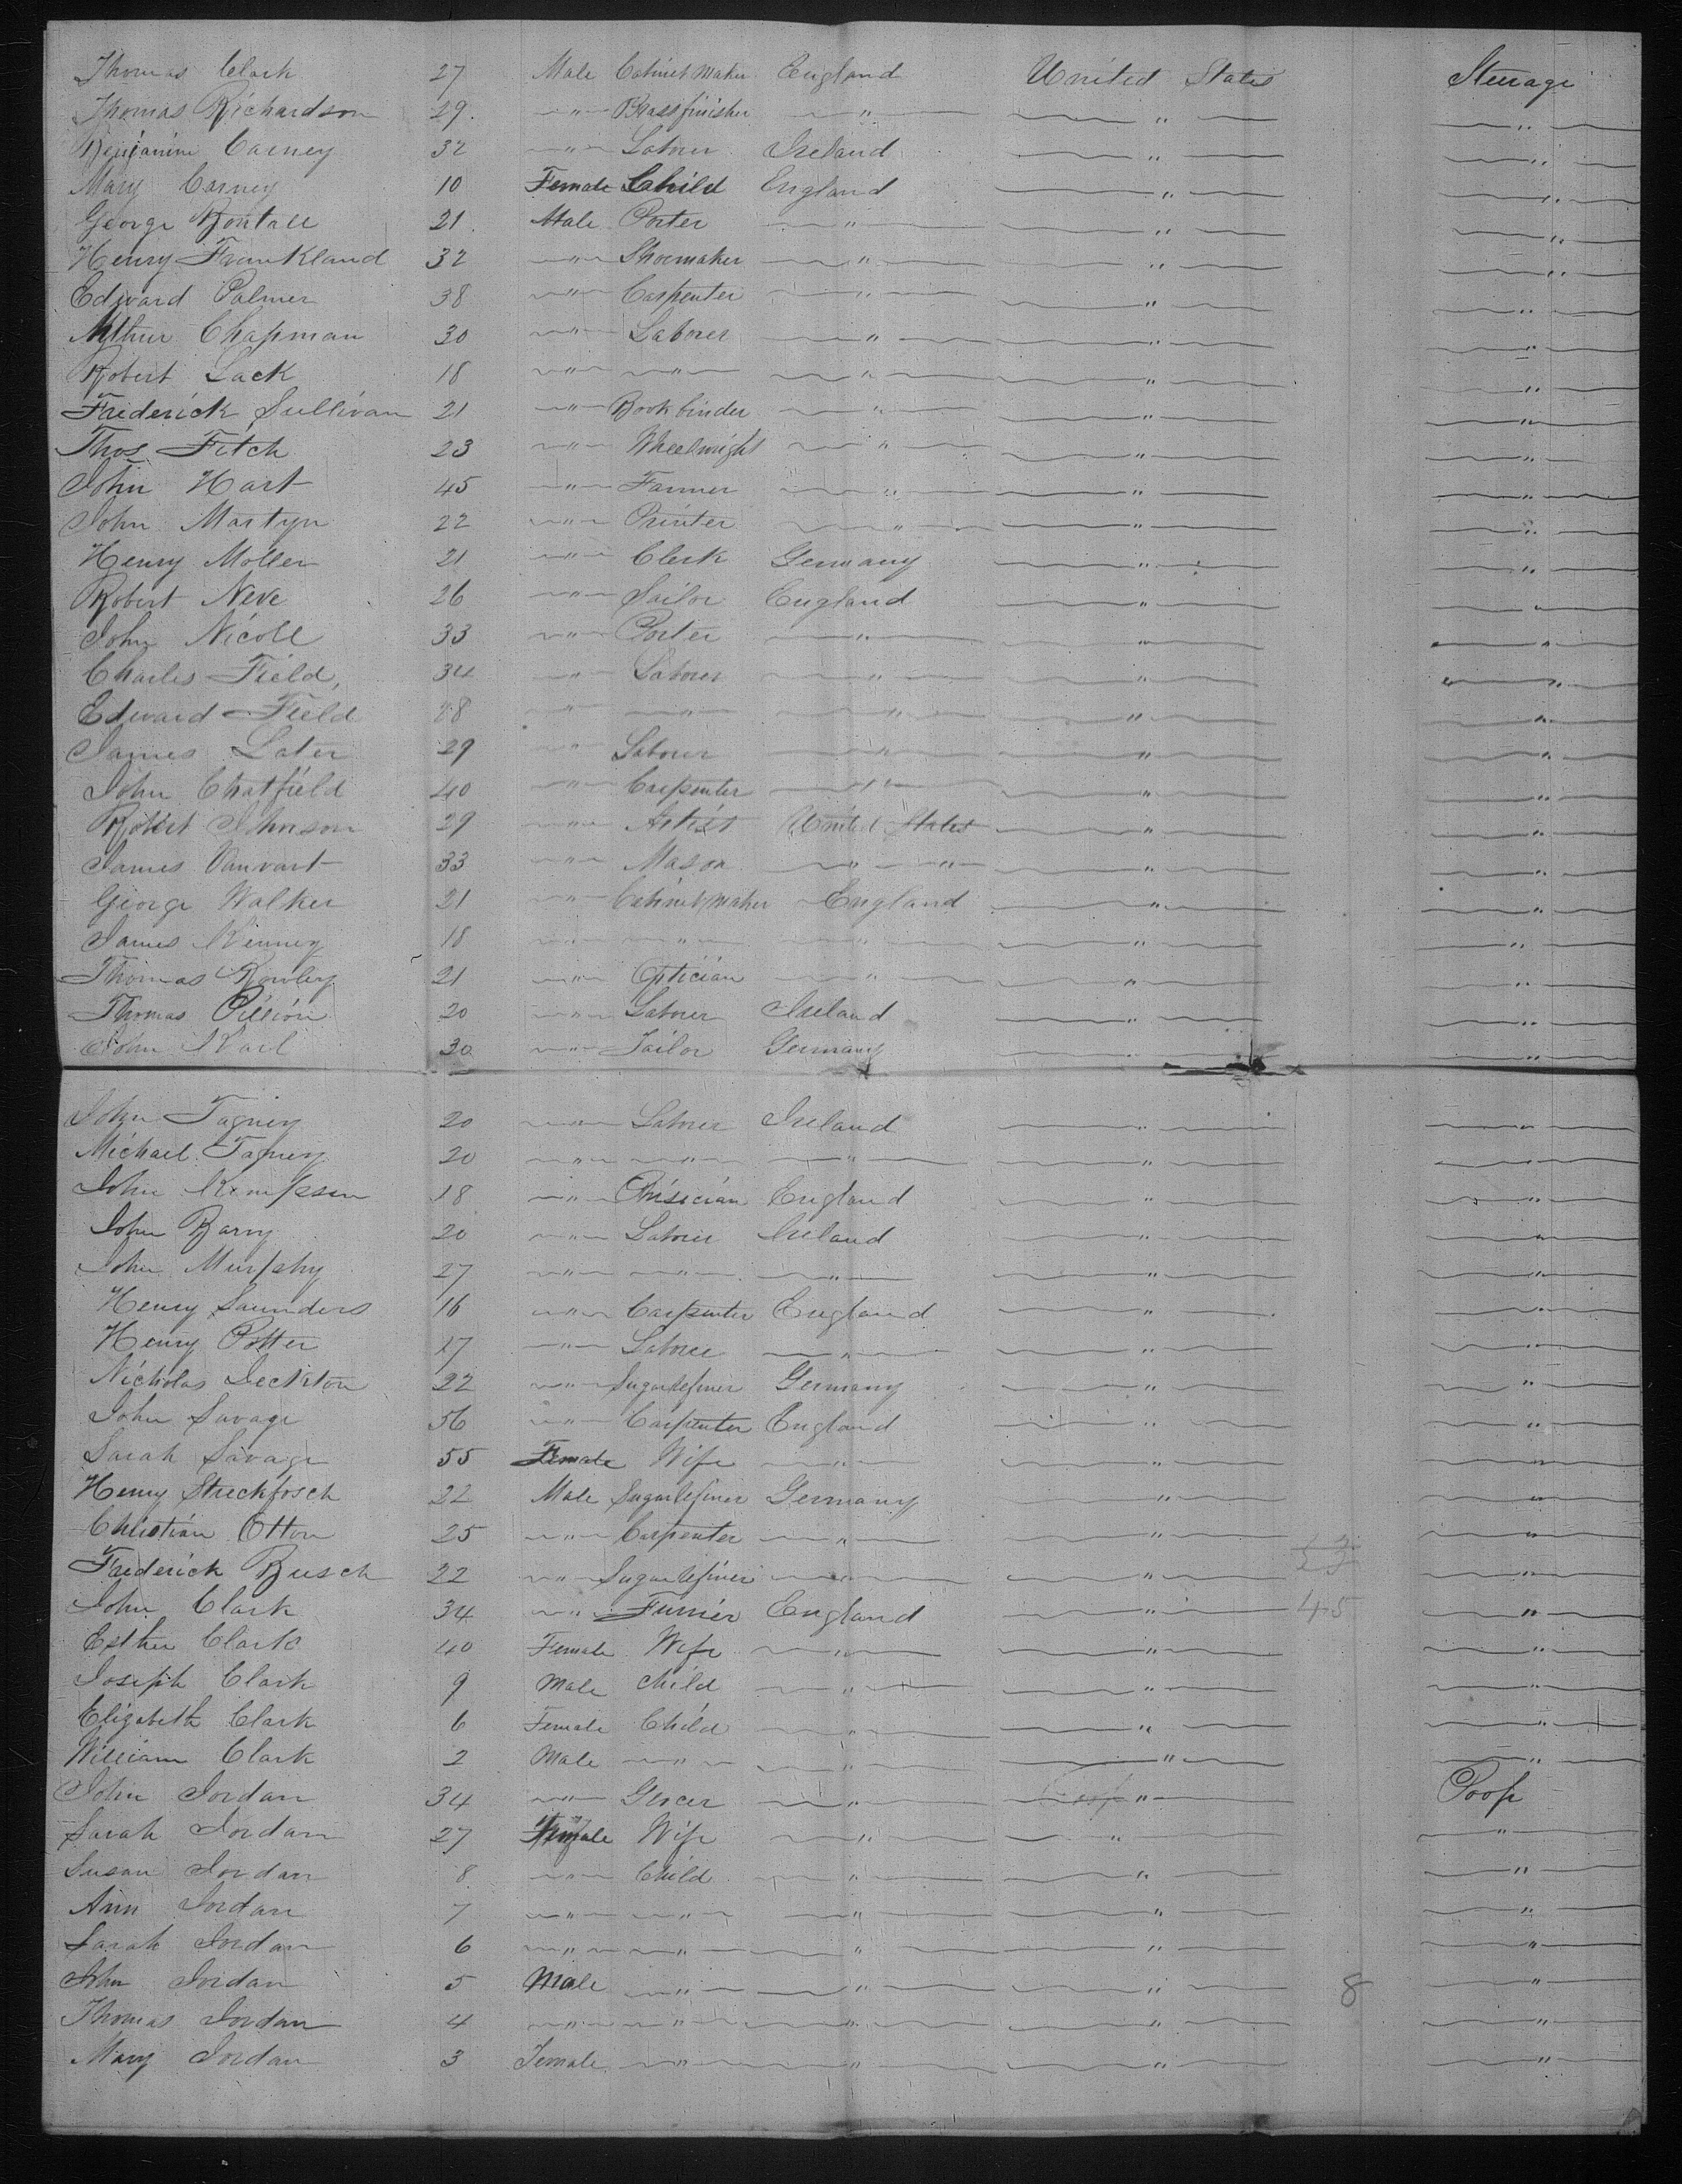 Thomas Clark 27 Male Cabinet Maker England United States Steerage
Thomas Richardson 29. " Brassfinisher " " "
Benjamine Carney 32 " Laborer Ireland " "
Mary Carney 10 Female Child England " "
George 21. Male Porter " " "
Henry Frankland 32 " Shoemaker " " "
Edward Palmer 38 " Carpenter " " "
Arthur Chapman 30 " Laborer " " "
Robert Lack 18 " " " " "
Frederick Sullivan 21 " Bookbinder " " "
Thos Fitch 23 " Wheelwright " " "
John Hart 45 " Farmer " " "
John Martyn 22 " Printer " " "
Henry Moller 21 " Clerk Germany " "
Robert Neve 26 " Sailor England " "
John Nicoll 33 " Porter " " "
Charles Field, 34 " Laborer " " "
Edward Field 28 " " " " "
James Later 29 " Laborer " " "
John Chatfield 40 " Carpenter " " "
Robert Johnson 29 " Artist United States " "
James Vanvart 33 " Mason " " " "
George Walker 21 " Cabinet maker England " "
James Kenney 18 " " " " "
Thomas Rowley 21 " Optician " " "
Thomas Pillion 20 " Laborer Ireland " "
John Karl 30 " Tailor Germany " "
John Tagney 20 " Laborer Ireland " "
Michael Tagney 20 " " " " "
John Kempson 18 " Phisician England " "
John Barry 20 " Laborer Ireland " "
John Murphy 27 " " " " "
Henry Saunders 16 " Carpenter England " "
Henry Potter 17 " Laborer " " "
Nicholas 22 " Sugar refiner Germany " "
John Savage 56 " Carpenter England " "
Sarah Savage 55 Female Wife " " "
Henry Streckfosch 22 Male Sugar refiner Germany " "
Christian Otton 25 " Carpenter " " "
Frederick Busch 22 " Sugar refiner " " 53 "
John Clark 34 " Furrier England " 45 "
Esther Clark 40 Female Wife " " "
Joseph Clark 9 Male Child " " "
Elizabeth Clark 6 Female Child " " "
William Clark 2 Male " " " "
John Jordan 34 " Grocer " " Poop
Sarah Jordan 27 Female Wife " " "
Susan Jordan 8. " Child " " "
Ann Jordan 7 " " " " "
Sarah Jordan 6 " " " " "
John Jordan 5 Male " " " 8 "
Thomas Jordan 4 " " " " "
Mary Jordan 3 Female " " " "